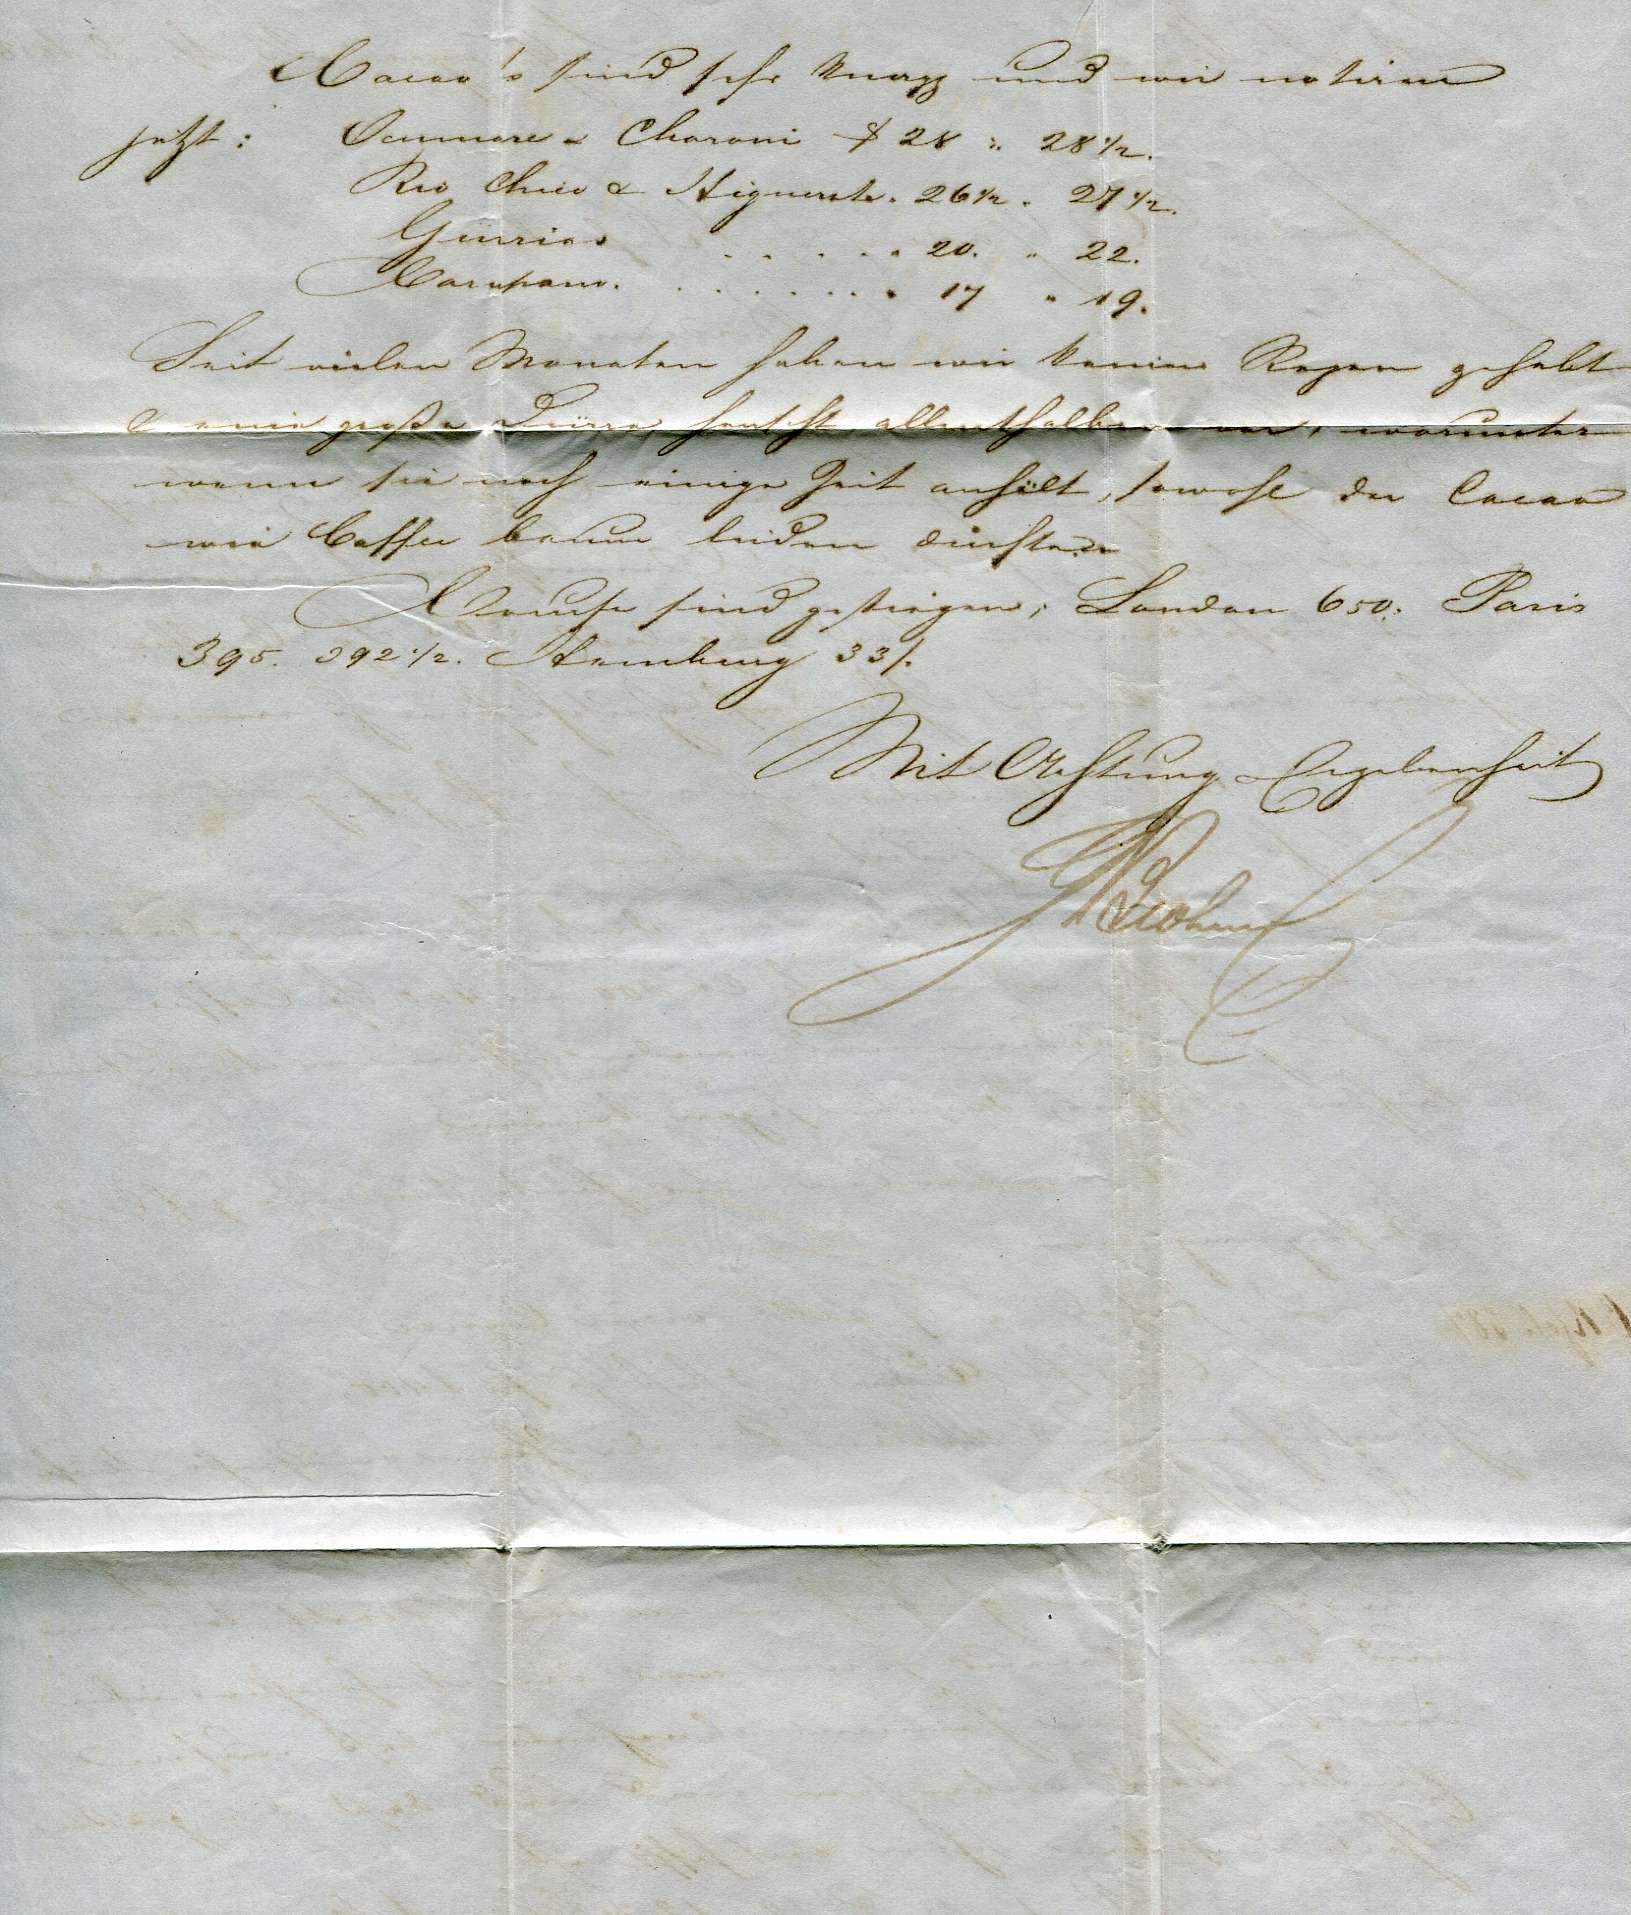 Cacao's sind sehr knapp und wir notiren
jetzt: Ocumare & Choroni $ 28 " 28 1/2.
Rio Chico & Higuerote. 26 1/2 " 27 1/2.
Güirias . . . . . 20. " 22.
Carupano. . . . . . . . 17 " 19.
Seit vielen Monaten haben wir keinen Regen gehabt
& eine große Dürre herrscht allenthalben vor, worunter
wenn sie noch einige Zeit anhält, sowohl der Cacao
wie Caffee baum leiden dürften
Course sind gestiegen; London 650; Paris
395. 392 1/2. Hamburg 33/.
Mit Achtung & Ergebenheit